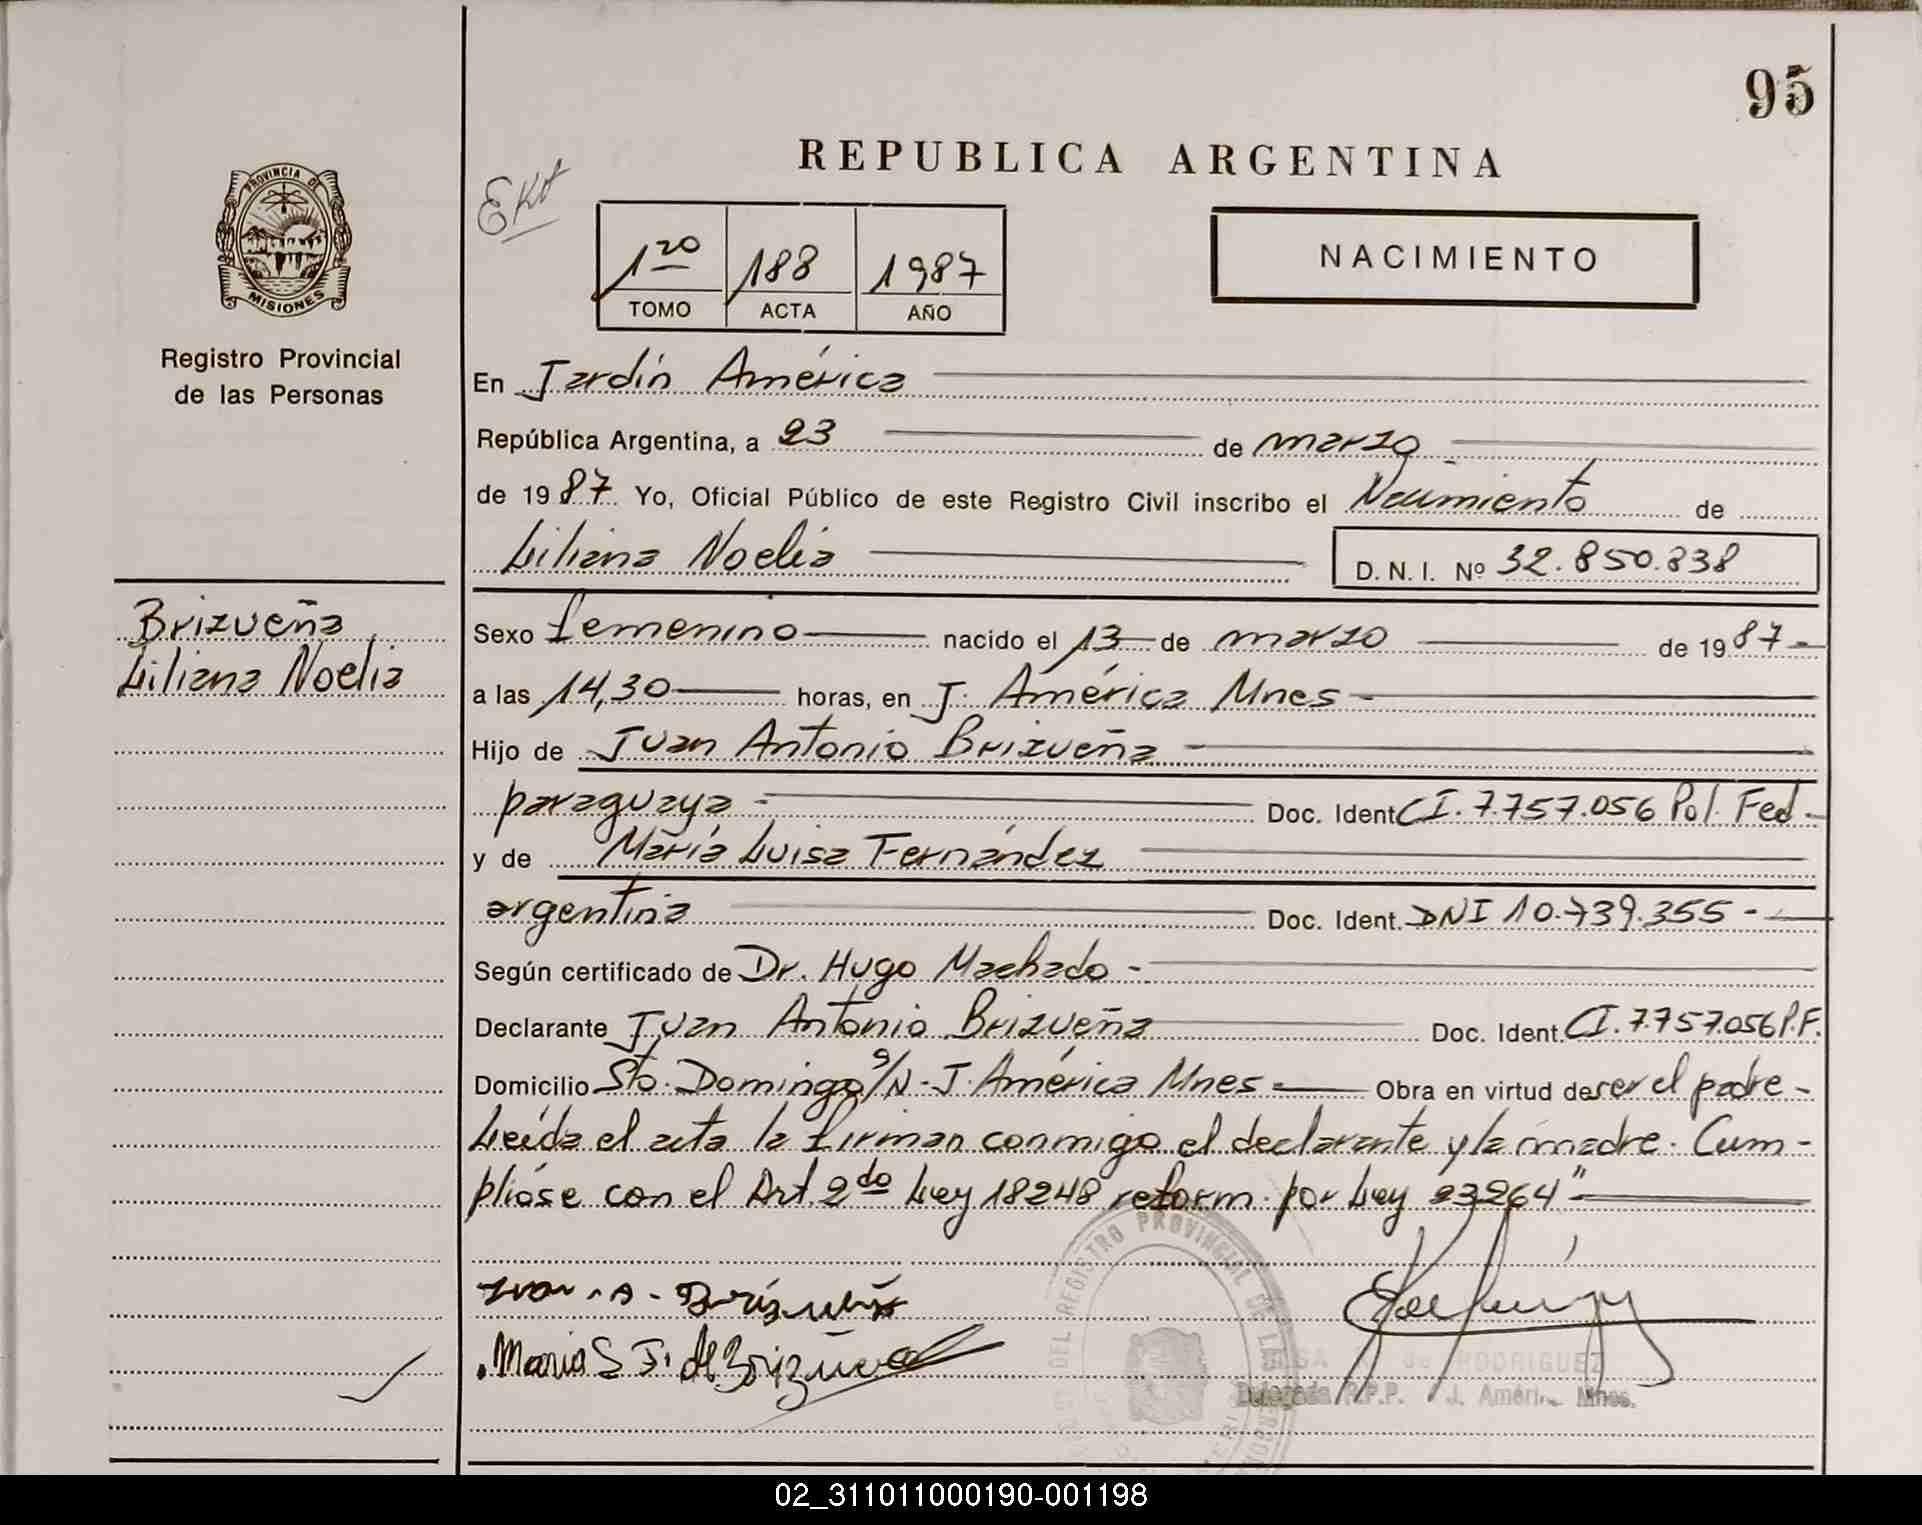 95
REPUBLICA ARGENTINA
PROVINCIA DE
MISIONES
Registro Provincial
de las Personas
1ro 188 1987
TOMO ACTA AÑO
NACIMIENTO
En Jardín América
República Argentina, a 23 de marzo
de 1987 Yo, Oficial Público de este Registro Civil inscribo el Nacimiento de
Liliana Noelia D. N. I. Nº 32.850.838
Brizueña
Liliana Noelia
Sexo femenino nacido el 13 de marzo de 1987-
a las 14,30 horas, en J. América Mnes-
Hijo de Juan Antonio Brizueña-
paraguaya- Doc. Ident. CI. 7.757.056 Pol. Fed-
y de María Luisa Fernández
argentina Doc. Ident. DNI 10.739.355-
Según certificado de Dr. Hugo Machado-
Declarante Juan Antonio Brizueña Doc. Ident. CI. 7.757.056 P.F.
Domicilio Sto. Domingo s/N-J. América Mnes- Obra en virtud de ser el padre-
Leída el acta la firman conmigo el declarante y la madre. Cum-
plióse con el Art. 2do Ley 18248 reform. por Ley 23264"-
Juan A. Brizueña
Maria L F. de Brizueña
REGISTRO PROVINCIAL DE LAS PERSONAS
de RODRIGUEZ
Delegada R.P.P. J. Améri. Mnes.
02_311011000190-001198